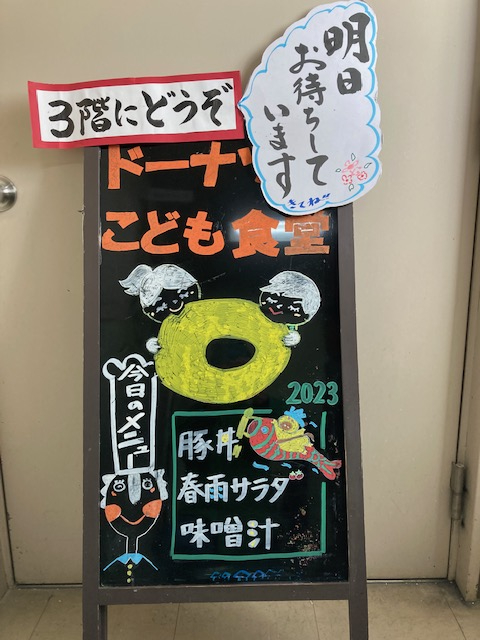 3階にどうぞ
明日
お待ちして
います
ドーナツ
こども食堂
今日のメニュー
2023
豚丼
春雨サラダ
味噌汁